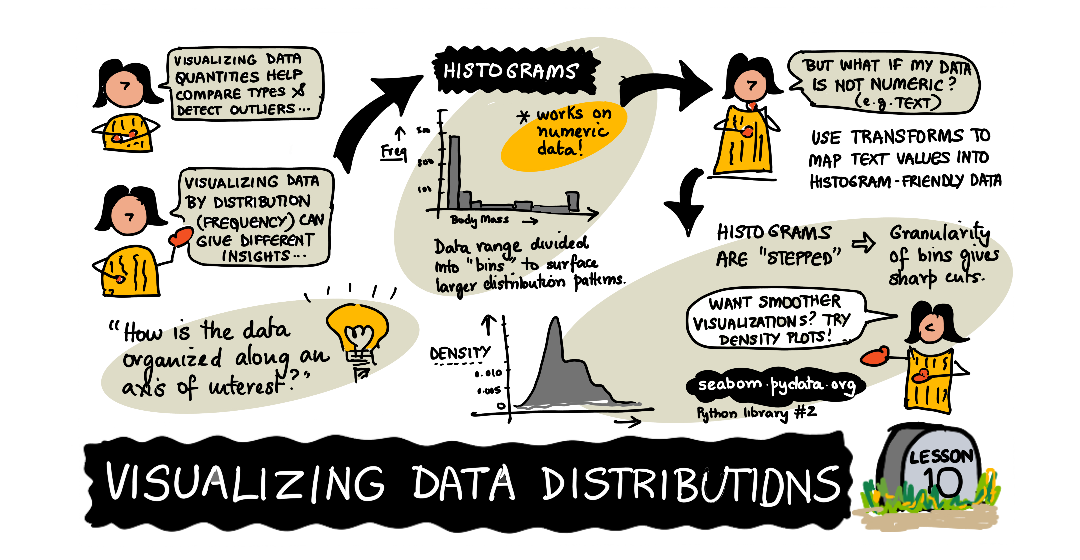 VISUALIZING DATA
QUANTITIES HELP
COMPARE TYPES &
DETECT OUTLIERS...
VISUALIZING DATA
BY DISTRIBUTION
(FREQUENCY) CAN
GIVE DIFFERENT
INSIGHTS...
"How is the data
organized along an
axis of interest?"
HISTOGRAMS
* works on
numeric
data!
Freq
Body Mass
Data range divided
into "bins" to surface
larger distribution patterns.
DENSITY
0.010
0.005
0
BUT WHAT IF MY DATA
IS NOT NUMERIC?
(e.g. TEXT)
USE TRANSFORMS TO
MAP TEXT VALUES INTO
HISTOGRAM-FRIENDLY DATA
HISTOGRAMS
ARE "STEPPED"
⇒ Granularity
of bins gives
sharp cuts.
WANT SMOOTHER
VISUALIZATIONS? TRY
DENSITY PLOTS!
seaborn.pydata.org
Python library #2
VISUALIZING DATA DISTRIBUTIONS
LESSON
10